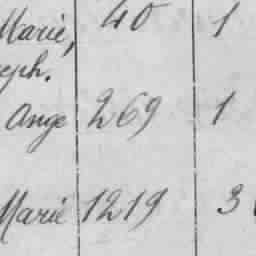 Marie, 40 1
eph.
Ange 269 1
Marie 1219 3